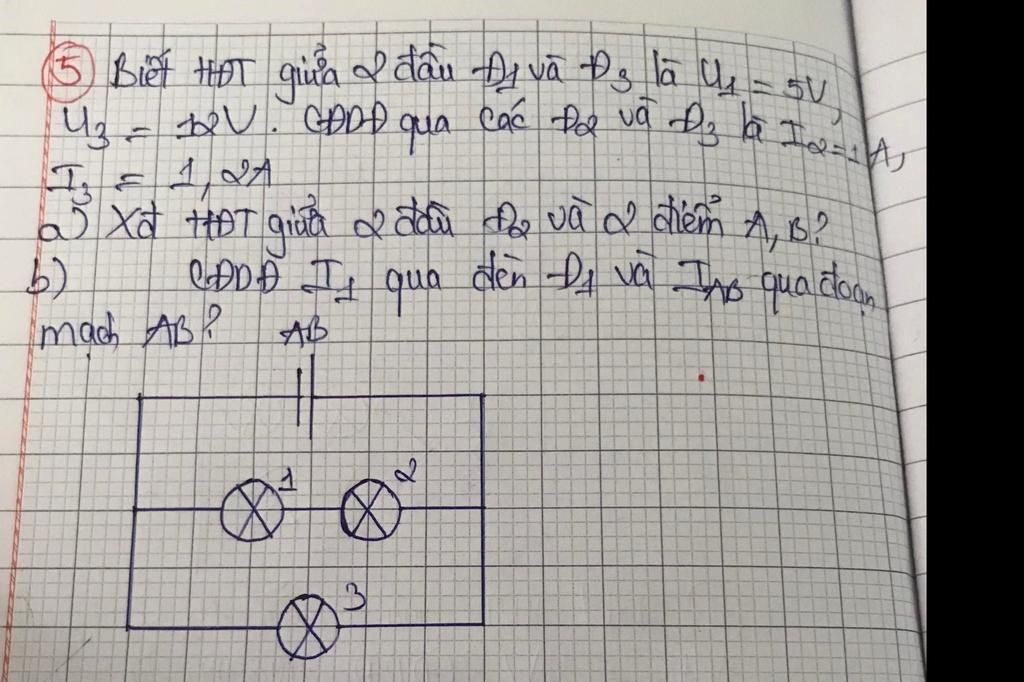 5 Biết HĐT giữa 2 đầu Đ1 và Đ3 là U1 = 5V,
U3 = 12V. CĐDĐ qua các Đ2 và Đ3 là I2 = 1A,
I3 = 1,2A
a) Xđ HĐT giữa 2 đầu Đ2 và 2 điểm A, B?
b) CĐDĐ I1 qua đèn Đ1 và IAB qua đoạn
mạch AB?
AB
1 2
3